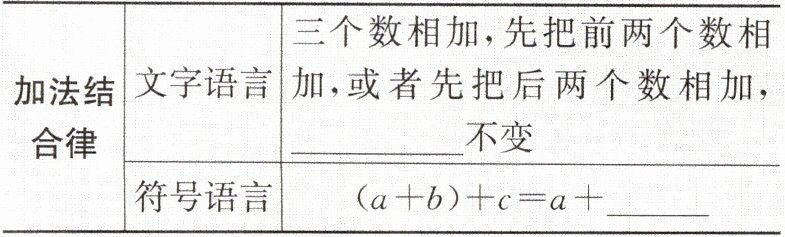 加法结合律
文字语言
三个数相加,先把前两个数相
加,或者先把后两个数相加,
________不变
符号语言
(a+b)+c=a+_____